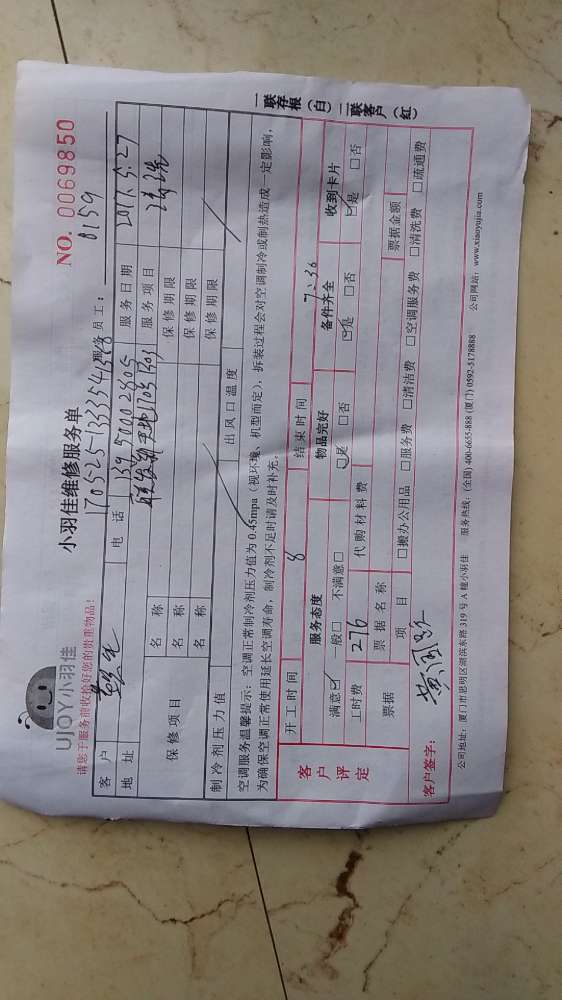 UJOY小羽佳
小羽佳维修服务单
NO. 0069850
请您于服务前收拾好您的贵重物品!
服务员工: 0159
客户
电话 13950002805
服务日期 2017.5.27
地址
服务项目 清洗
保修项目
名称
保修期限
名称
保修期限
名称
保修期限
制冷剂压力值
出风口温度
空调服务温馨提示: 空调正常制冷剂压力值为 0.45mpa (视环境、机型而定), 拆装过程会对空调制冷或制热造成一定影响,
为确保空调正常使用延长空调寿命, 制冷剂不足时请及时补充。
客户评定
开工时间 8
结束时间
服务态度
物品完好
备件齐全
收到卡片
满意☑ 一般□ 不满意□
☑是 □否
☑是 □否
☑是 □否
工时费 276
代购材料费
票据
票据名称
票据金额
项目
□搬办公用品 □服务费 □清洁费 □空调服务费 □清洗费 □疏通费
客户签字:
公司地址: 厦门市思明区湖滨东路 319 号 A 幢小羽佳 服务热线: (全国) 400-6655-888 (厦门) 0592-5178888 公司网站: www.xiaoyujia.com
一联存根(白) 二联客户(红)